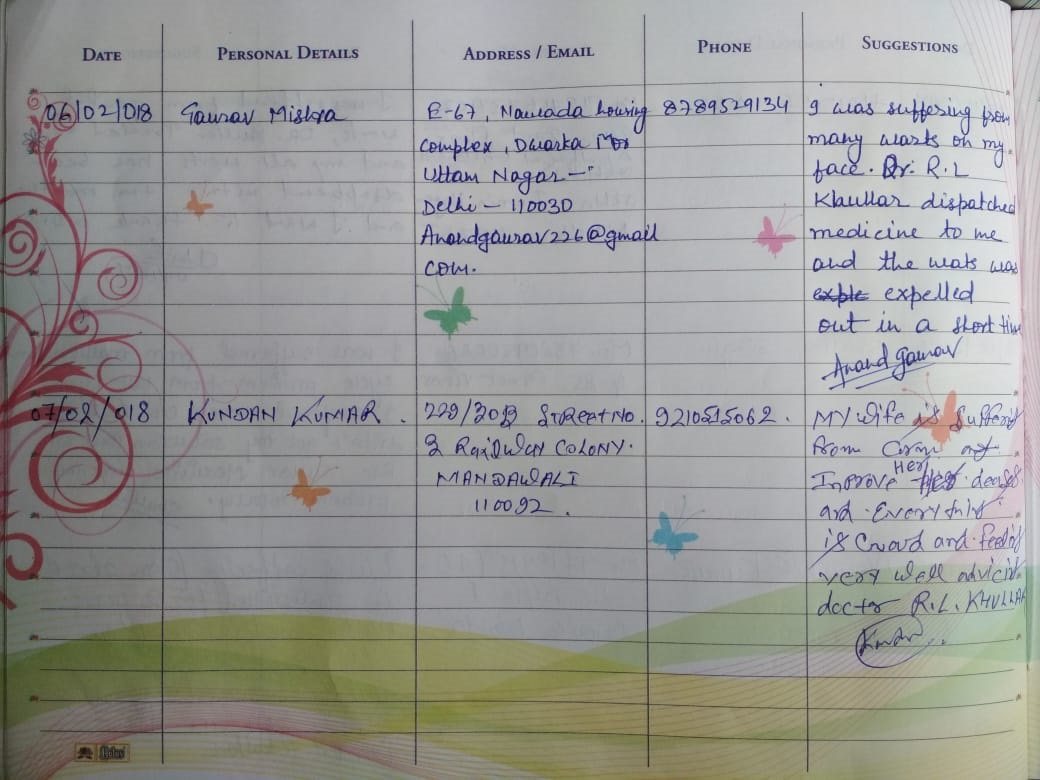 DATE
PERSONAL DETAILS
ADDRESS / EMAIL
PHONE
SUGGESTIONS
06/02/018
Gaurav Mishra
E-67, Nawada housing
complex, Dwarka Mor
Uttam Nagar
Delhi - 110030
Anandgaurav226@gmail
com.
8789529134
I was suffering from
many warts on my
face. Dr. R.L
Khullar dispatched
medicine to me
and the warts was
expelled
out in a short time
Anand Gaurav
07/02/018
KUNDAN KUMAR.
229/30B STREET NO.
2 Railway COLONY.
MANDAWALI
110092.
9210515062.
MY wife is Suffering
from
Improve Her
and Everything
is and feeling
very well
doctor R.L. KHULLAR
Notes